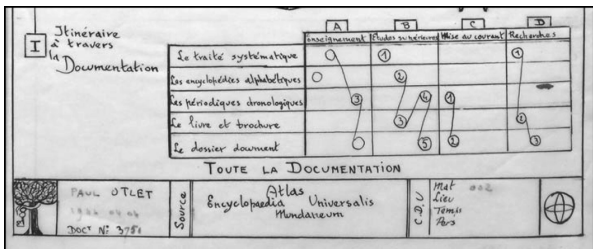 I
Itinéraire
à travers
la Documentation
A B C D
Enseignement Études supérieures Mise au courant Recherches
Le traité systématique 1 1
Les encyclopédies alphabétiques 2
Les périodiques chronologiques 3 4 1
Le livre et brochure 3 2
Le dossier document 5 2 3
TOUTE LA DOCUMENTATION
PAUL OTLET
DOCT No 3751
Source
Atlas
Encyclopaedia Universalis
Mundaneum
C.D.U
Mat 002
Lieu
Temps